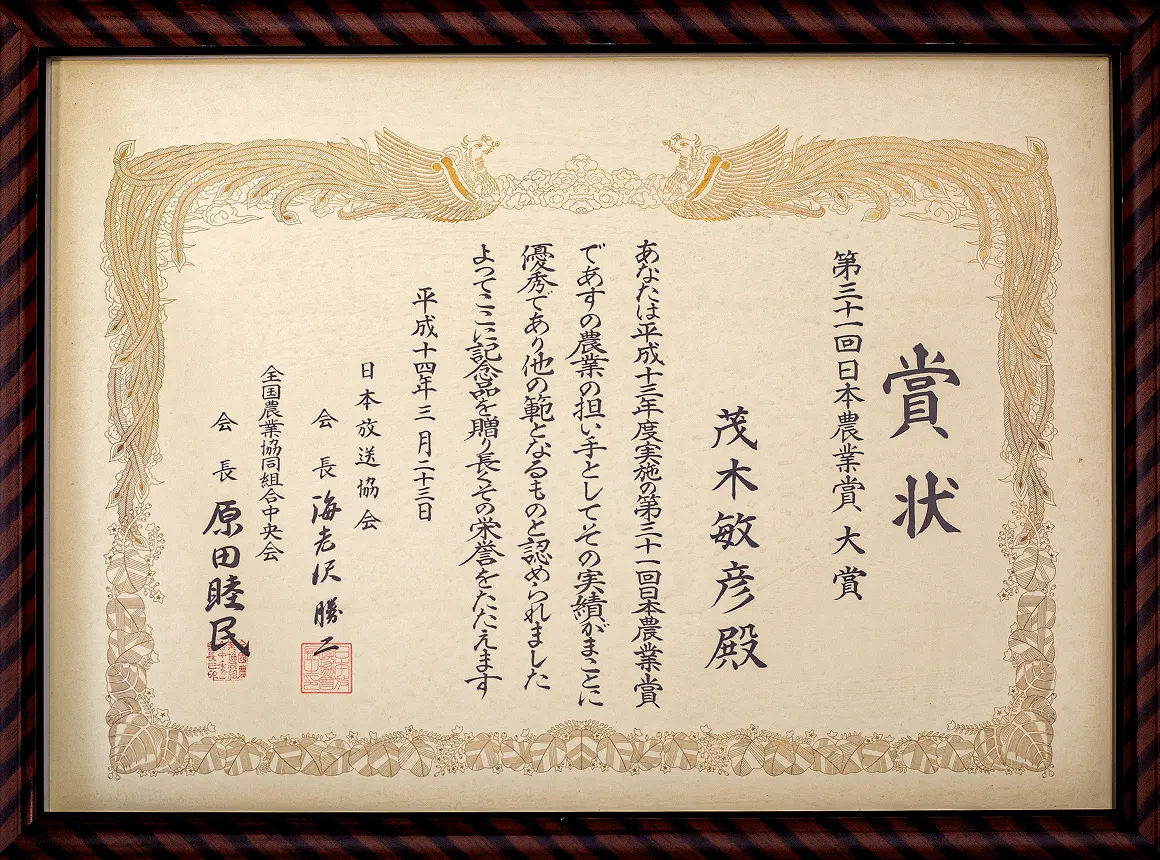 賞状
第三十一回日本農業賞 大賞
茂木敏彦殿
あなたは平成十三年度実施の第三十一回日本農業賞
であすの農業の担い手としてその実績がまことに
優秀であり他の範となるものと認められました
よってここに記念品を贈り長くその栄誉をたたえます
平成十四年三月二十三日
日本放送協会
会長 海老沢勝二
全国農業協同組合中央会
会長 原田睦民